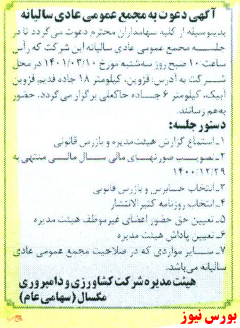 آگهی دعوت به مجمع عمومی عادی سالیانه
بدینوسیله از کلیه سهامداران محترم دعوت می گردد تا در
جلسه مجمع عمومی عادی سالیانه این شرکت که رأس
ساعت ۱۰ صبح روز سه شنبه مورخ ۱۴۰۱/۰۳/۱۰ در محل
شرکت به آدرس: قزوین، کیلومتر ۱۸ جاده قدیم قزوین
آبیک، کیلومتر ۶ جاده خاکعلی برگزار می گردد. حضور
بهم رسانند.
دستور جلسه:
۱-استماع گزارش هیئت مدیره و بازرس قانونی
۲-تصویب صورتهای مالی سال مالی منتهی به
۱۴۰۰/۱۲/۲۹
۳-انتخاب حسابرس و بازرس قانونی
۴-انتخاب روزنامه کثیر الانتشار
۵-تعیین حق حضور اعضای غیرموظف هیئت مدیره
۶-تعیین پاداش هیئت مدیره
۷-سایر مواردی که در صلاحیت مجمع عمومی عادی
سالیانه می باشد.
هیئت مدیره شرکت کشاورزی و دامپروری
مگسال (سهامی عام)
بورس نیوز